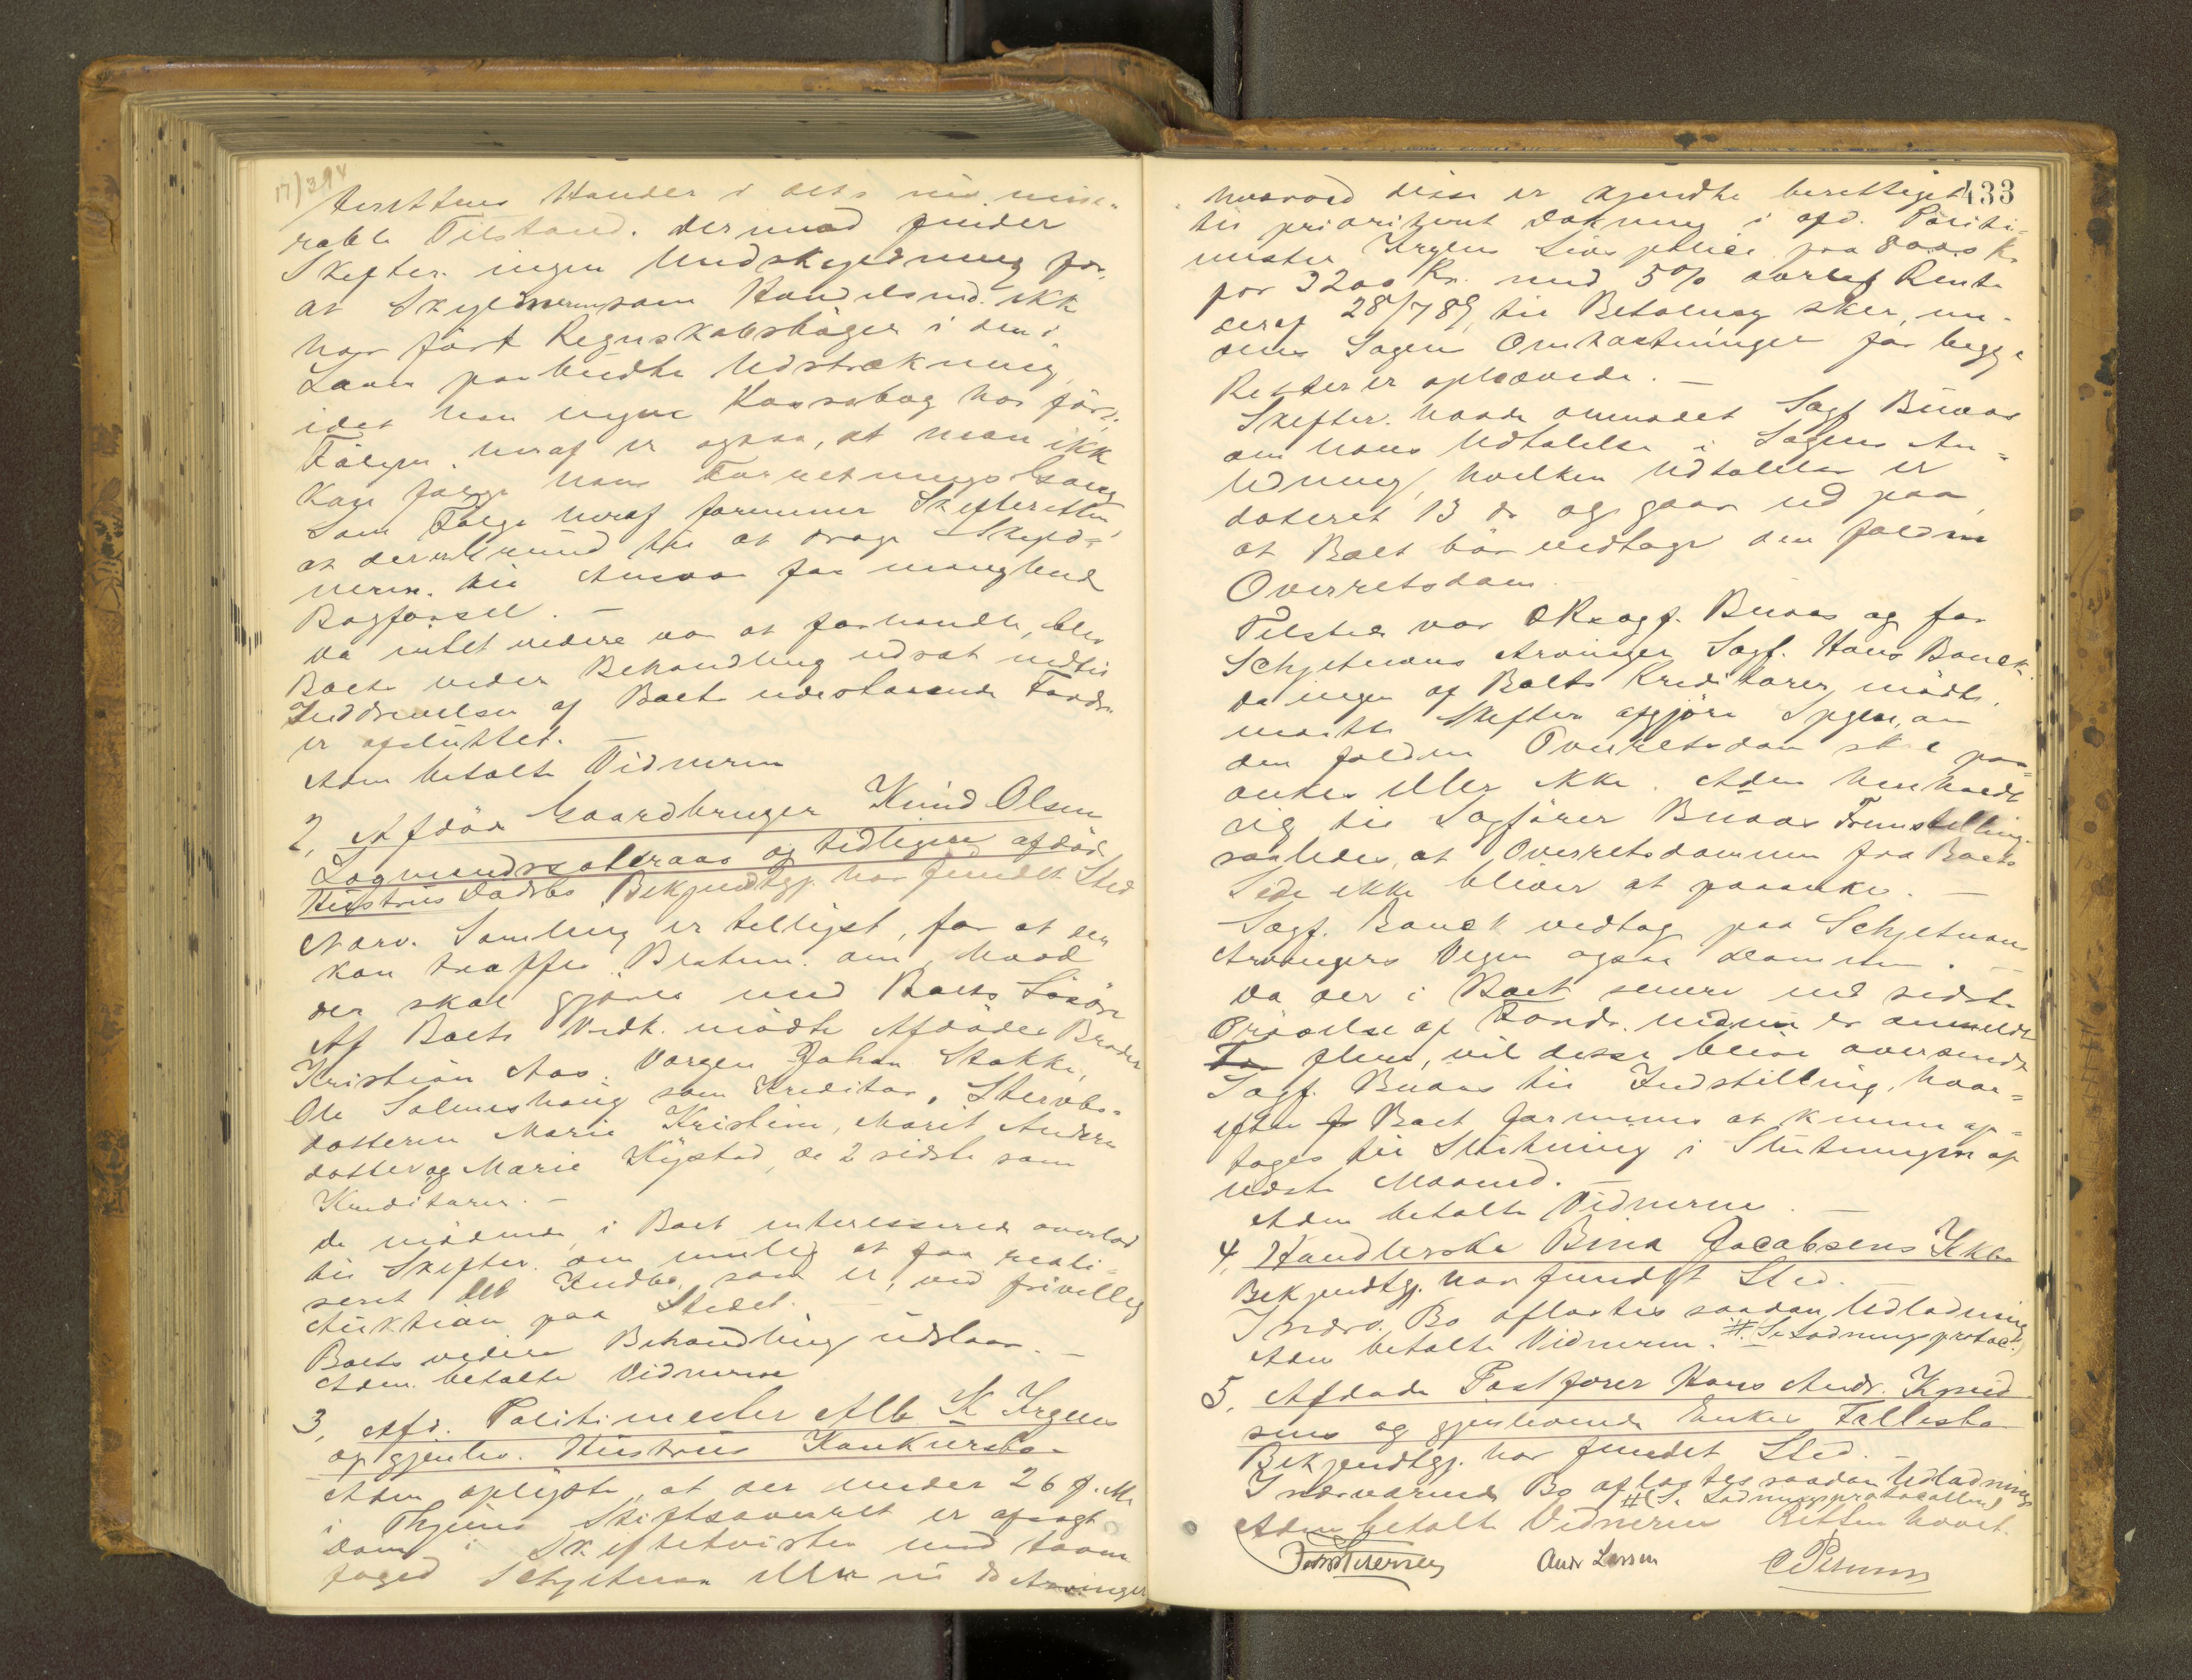 17/3 94
Hænder i dets nu mise-
rable Tilstand. Dermod finder
Skifter. ingen Undskyldning for,
at Skyldneren som Handelsmd. ikke
har ført Regnskabsbøger i den i
Loven paabudte Udstrækning,
idet han ingen Kassabog har ført.
Følgen heraf er ogsaa, at man ikke
kan følge hans Forretnings Gang
Som Følge heraf formener Skifteretten,
at der er Grund til at drage Skyld-
neren til Ansvar for manglende
Bogførsel. —
Da intet videre var at forhandle, blev
Boets videre Behandling udsat indtil
Inddrivelsen af Boets udestaaende Fordr.
er afsluttet. —
Adm betalte Vidnerne
2, Afdøde Gaardbruger Knud Olsen
Lagmandssætraas og tidligere afdøde
Hustrus Dødsbo. Bekjendtgj. har fundet Sted
Nærv. Samling er tillyst, for at der
kan træffes Bestem. om, hvad
der skal gjøres med Boets Løsøre
Af Boets Vedk. mødte Afdødes Broder
Kristian Aas. Værgen Johan Stokke,
Ole Solemshaug som Kreditor, Stervbo-
datteren Marie Kristine, Marit Anders
datter og Marie Nystad, de 2 sidste som
Kreditorer. —
De mødende i Boet interesserede overlod
til Skifter. om mulig at faa reali-
seret det Indbo, som er, ved frivillig
Auktion paa Stedet. —
Boets videre Behandling udstaar. —
Adm. betalte Vidnerne
3, Afd. Politimester Alb K Krgens
og gjenlev. Hustrus Konkursbo
Adm oplyste, at der under 26 f. M.
i Thjems Stiftsoverret er afsagt
Dom i Skiftetvisten med
foged Schjetnan eller nu ds Arvinger
433
hvorved disse er kjendte berettiget
til prioritert Dækning i afd. Politi-
mester Krgens Livspolice paa 8000 Kr
for 3200 Kr. med 5% aarlig Rente
deraf 28/7 89, til Betaling sker, me-
dens Sagens Omkostninger for begge
Retter er ophævede. —
Skifter. havde anmodet Sagf Buaas
om hans Udtalelse i Sagens An-
ledning, hvilken Udtalelse er
dateret 13 ds og gaar ud paa,
at Boet bør vedtage den faldne
Overretsdom.
Tilstede var ORsagf. Buaas og for
Schjetnans Arvinger Sagf. Hans Bauck.
Da ingen af Boets Kreditorer mødte,
maatte Skifter afgjøre Spgsm, om
den faldne Overretsdom skal paa-
ankes eller ikke. Adm henholdt
sig til Sagfører Buaas Fremstilling
saaledes, at Overretsdommen fra Boets
Side ikke bliver at paaanke. —
Sagf. Bauck vedtog paa Schjetnans
Arvingers Vegne ogsaa Dommen. —
Da der i Boet senere end sidste
Prøvelse af Fordr. er anmeldt
flere, vil disse blive oversendt
Sagf. Buaas til Indstilling, hvor-
efter Boet formenes at kunne op-
tages til Slutning i Slutningen af
næste Maaned. —
Adm betalte Vidnerne. —
4, Handlerske Bina Jacobsens Kkbo
Bekjendtgj. har fundet Sted. —
I nærv. Bo aflagdes saadan Udlodning
Adm betalte Vidnerne. # (Se Lodningsprotoc.)
5, Afdøde Postfører Hans Andr. Knud
sens og gjenlevende Enkes Fællesbo
Bekjendtgj. har fundet Sted. —
I nærværende Bo aflagdes saadan Udlodning
# (Se Lodningsprotocollen)
Adm betalte Vidnerne Retten hævet.
Andr Larsen